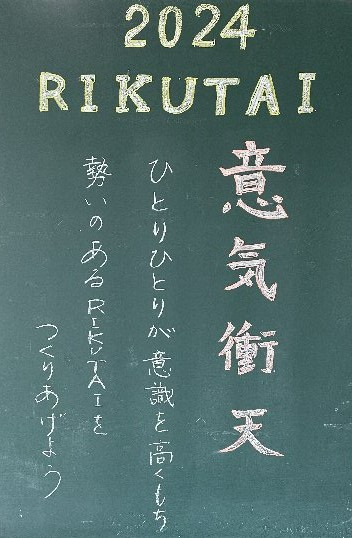 2024
RIKUTAI
意気衝天
ひとりひとりが意識を高くもち
勢いのあるRIKUTAIを
つくりあげよう